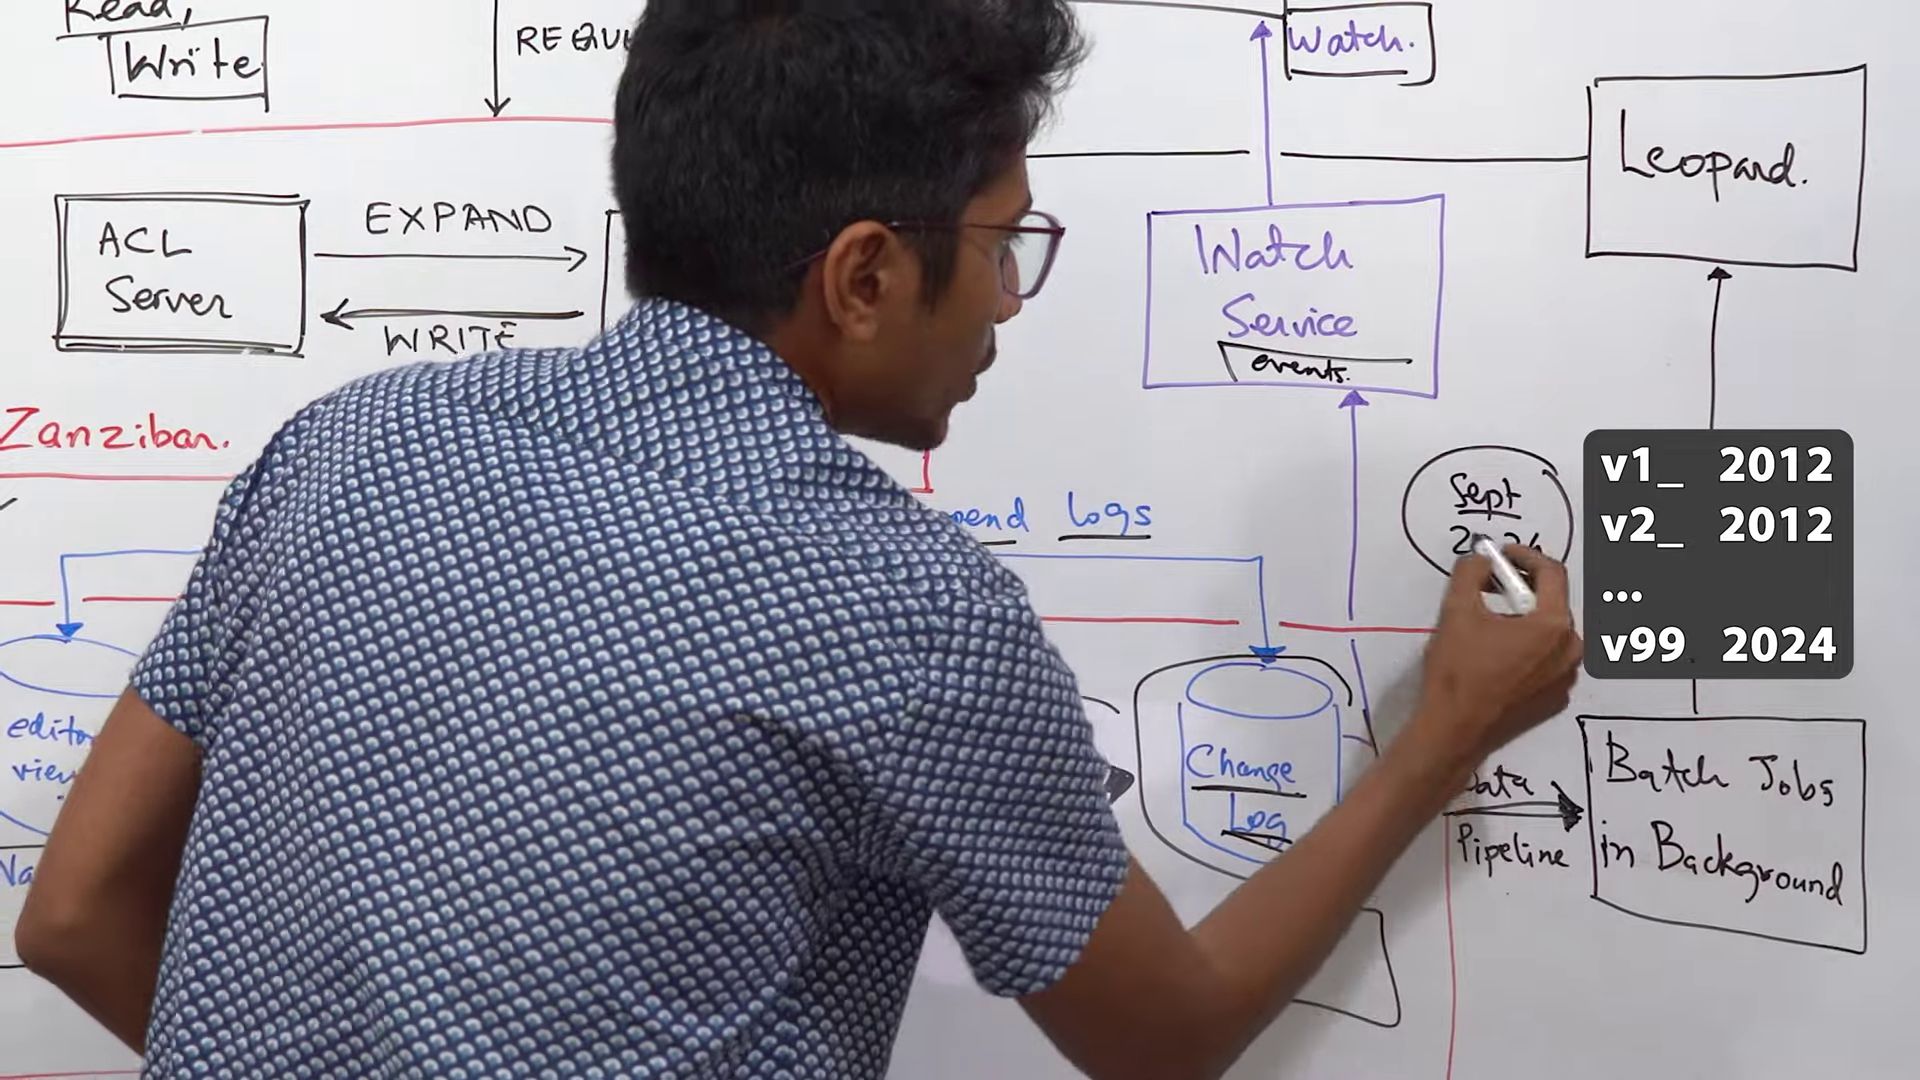 Read,
Write
Watch.
Leopard.
ACL
Server
EXPAND
WRITE
Watch
Service
events.
Zanzibar.
logs
Sept
v1_ 2012
v2_ 2012
...
v99 2024
Change
Log
Pipeline
Batch Jobs
in Background